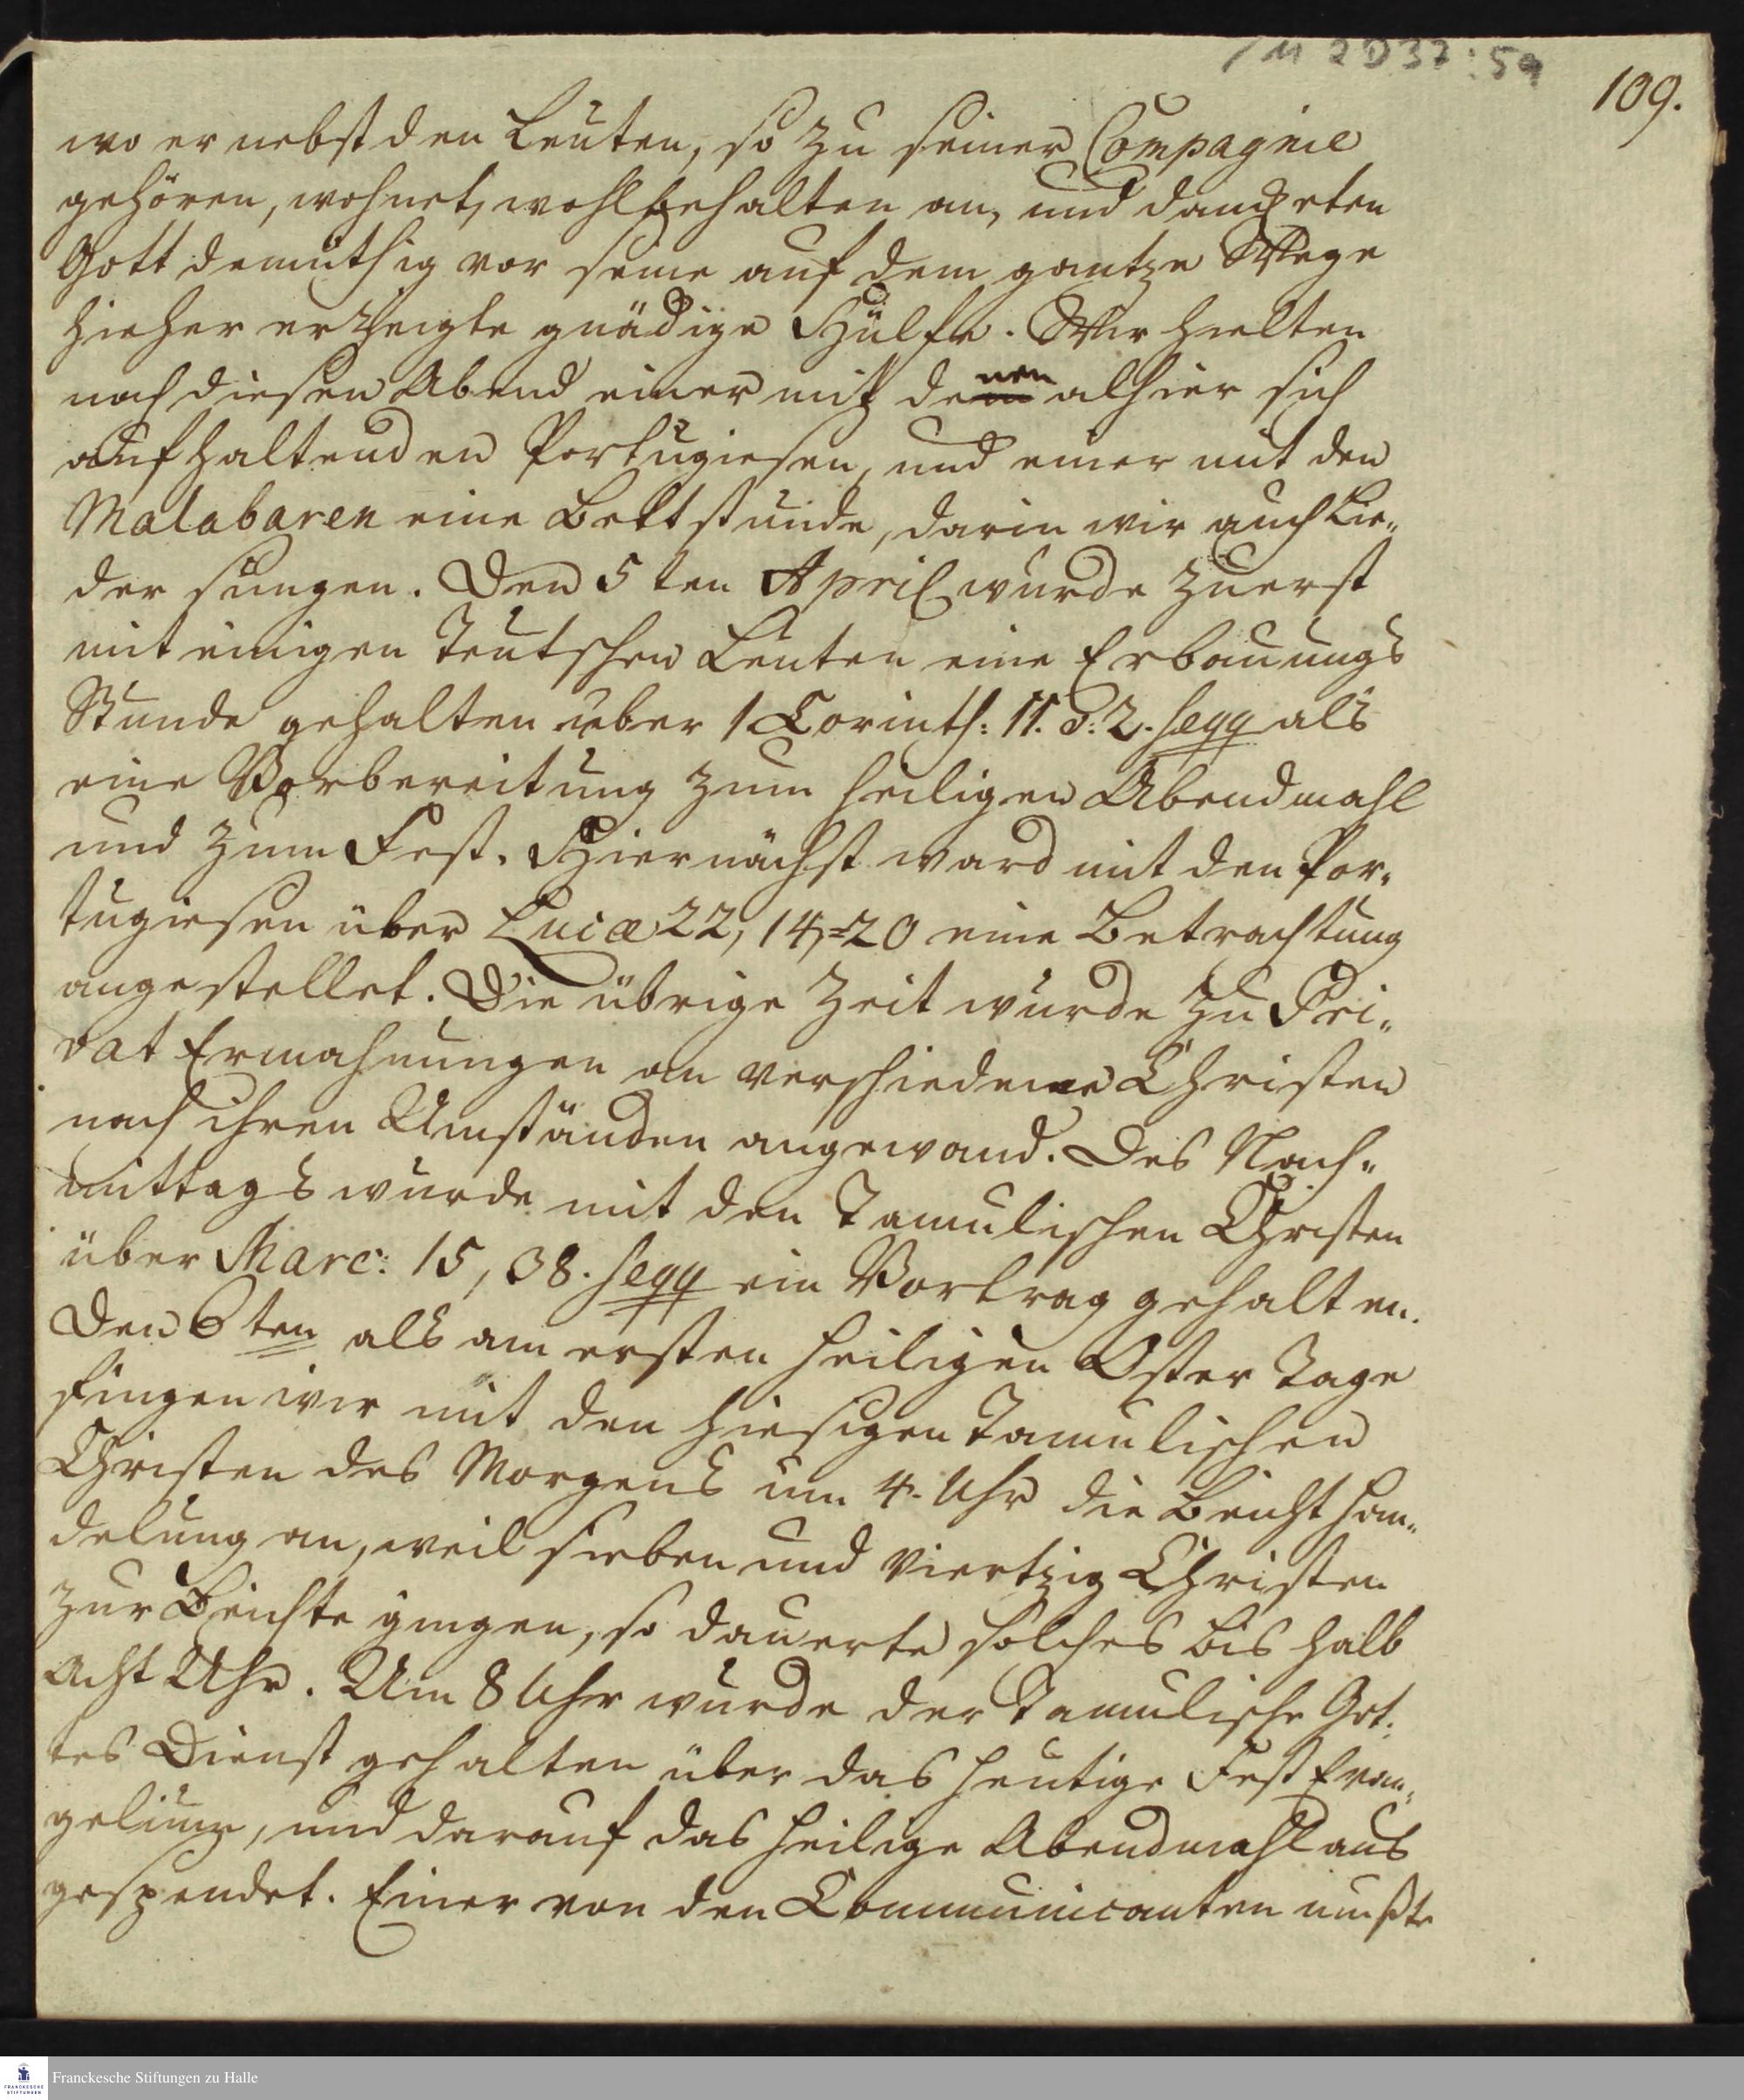 /M 2 D 37 : 59
109.
wo er nebst den Leuten, so zu seiner Compagnie
gehören, wohnet, wohlbehalten an, und danckten
Gott demüthig vor seine auf dem gantzen Wege
hieher erzeigte gnädige Hülfe. Wir hielten
noch diesen Abend einer mit denen alhier sich
aufhaltenden Portugiesen, und einer mit den
Malabaren eine Bettstunde, darin wir auch Lie„
der sungen. Den 5ten April wurde zuerst
mit einigen Teutschen Leuten eine Erbauungs
Stunde gehalten über 1 Corinth: 11. v: 2. seqq als
eine Vorbereitung zum heiligen Abendmahl
und zum Fest. Hiernächst ward mit den Por„
tugiesen über Lucæ 22, 14=20 eine Betrachtung
angestellet. Die übrige Zeit wurde zu Pri„
vat Ermahnungen an verschiedene Christen
nach ihren Umständen angewand. Des Nach„
mittags wurde mit den Tamulischen Christen
über Marc: 15, 38. seqq ein Vortrag gehalten.
Den 6ten als am ersten heiligen Oster Tage
fingen wir mit den hiesigen Tamulischen
Christen des Morgens um 4. Uhr die Beicht han„
delung an, weil sieben und viertzig Christen
zur Beichte gingen, so dauerte solches bis halb
acht Uhr. Um 8 Uhr wurde der Tamulische Got„
tes Dienst gehalten über das heutige Fest Evan„
gelium, und darauf das heilige Abendmahl aus
gespendet. Einer von den Communicanten mußte
Franckesche Stiftungen zu Halle
FRANCKESCHE
STIFTUNGEN